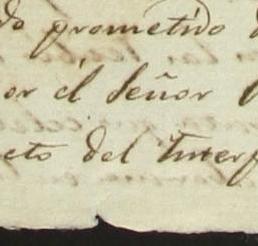 do prometido
or él Señor
eto del Interf